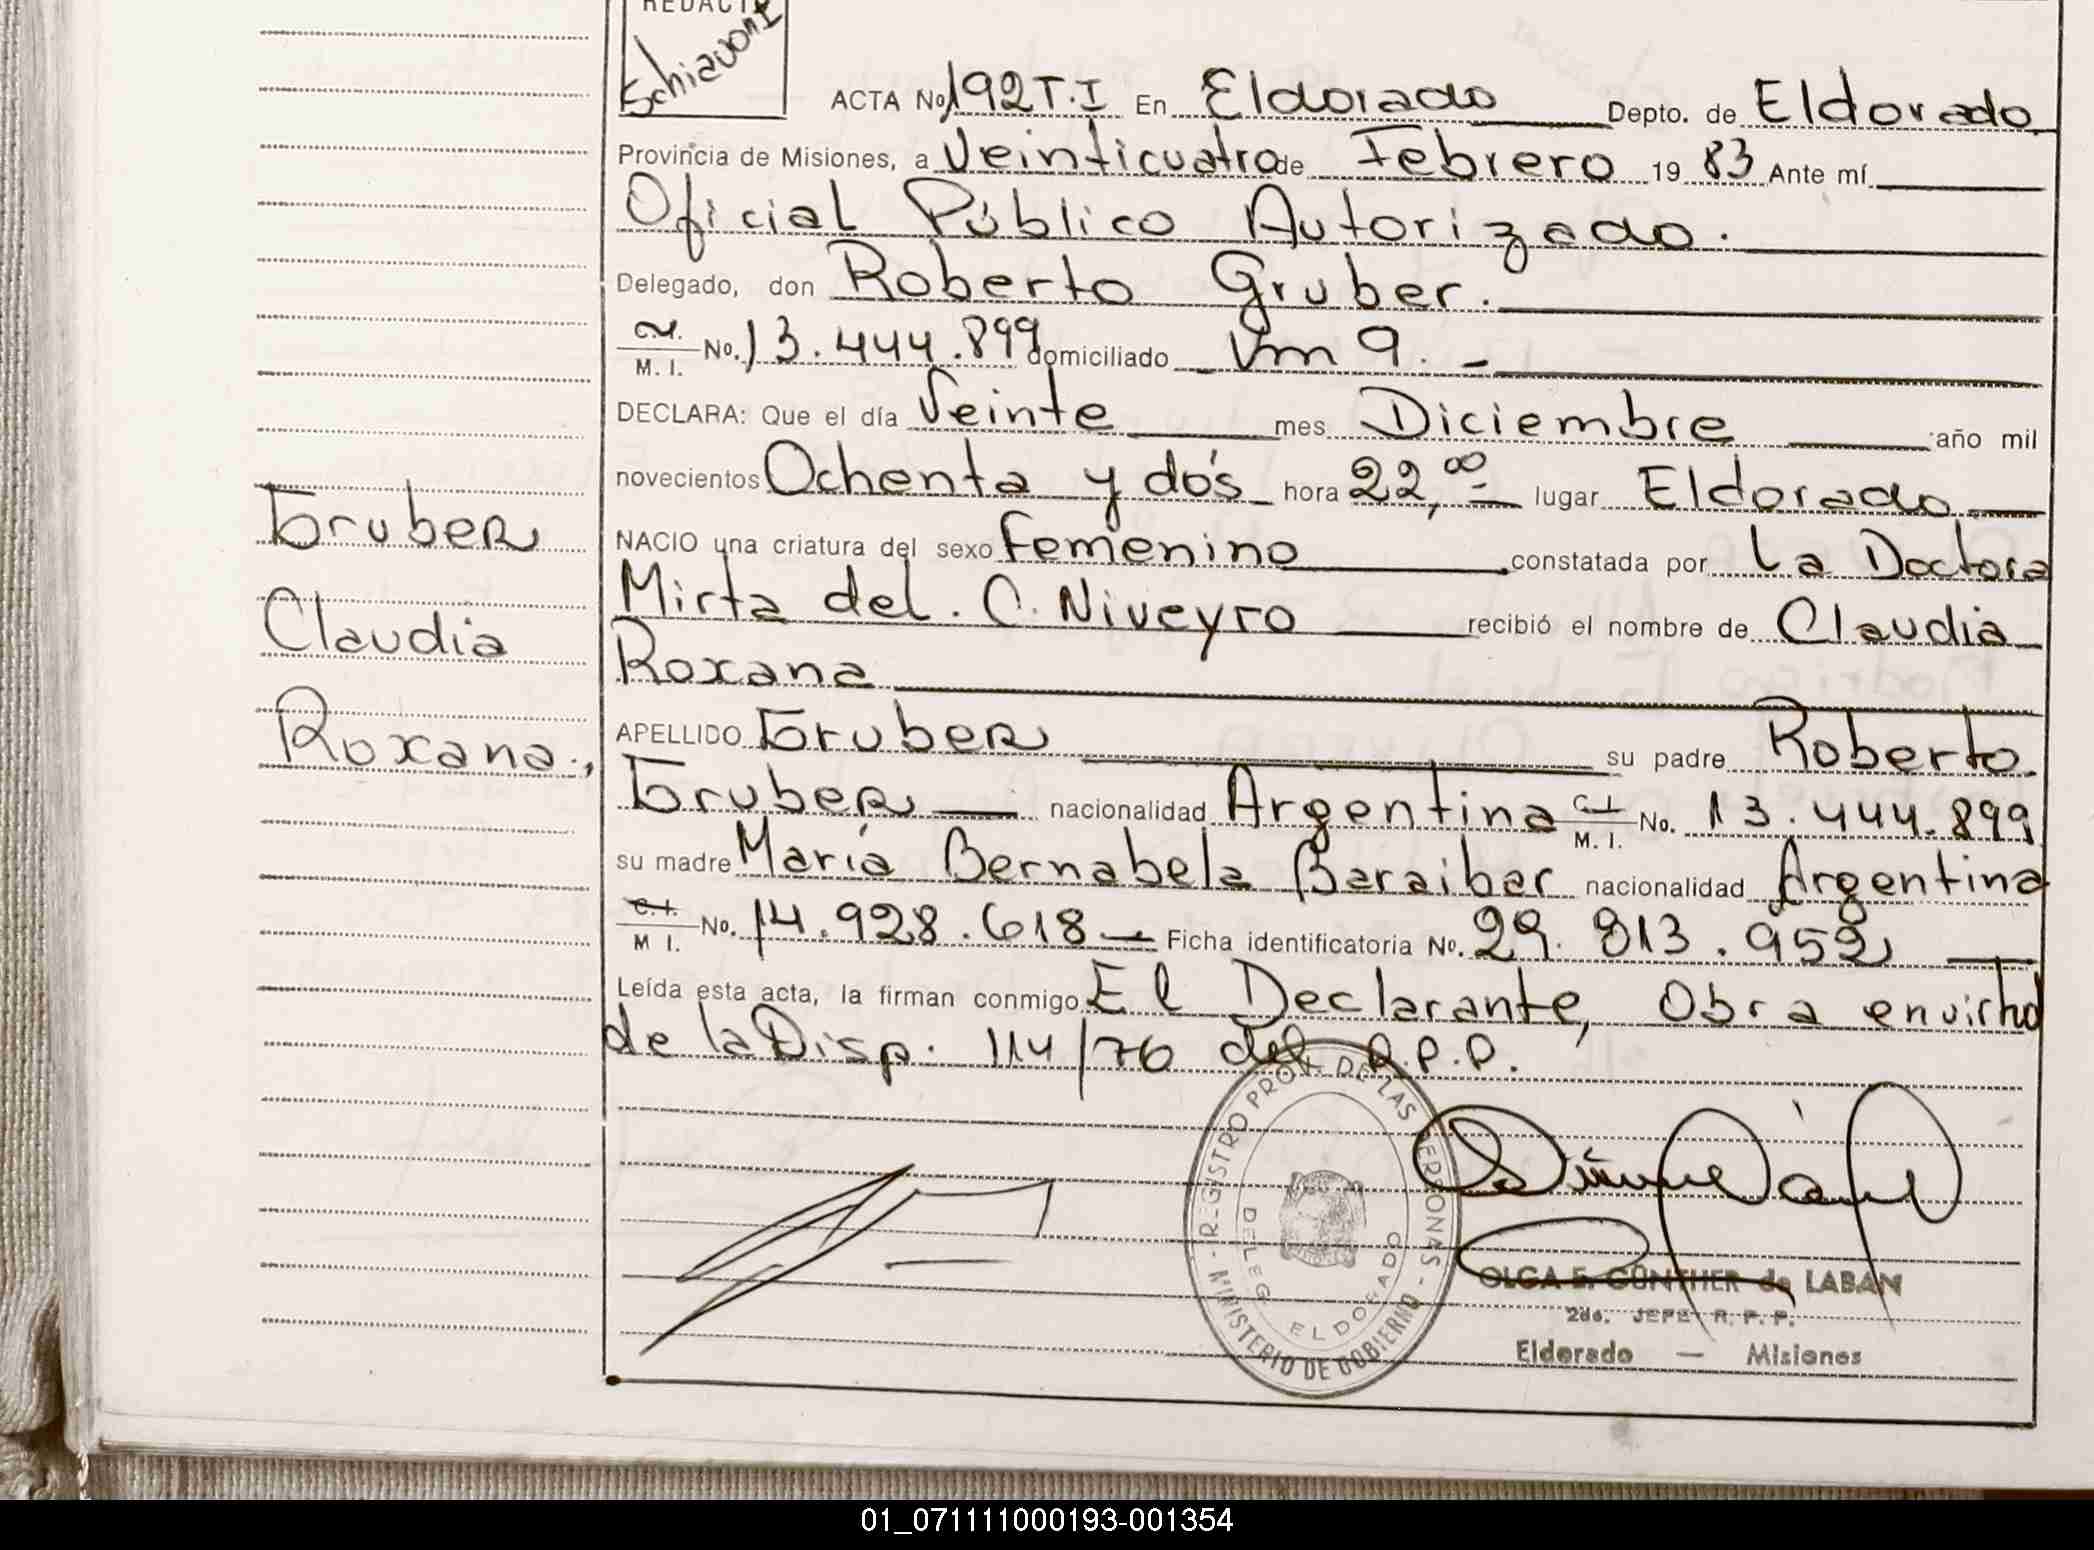 REDACT
Schiavoni
ACTA No 192 T.I En Eldorado Depto. de Eldorado
Provincia de Misiones, a Veinticuatro de Febrero 19 83 Ante mí
Oficial Público Autorizado.
Delegado, don Roberto Gruber.
M. I. No. 13.444.899 domiciliado Km 9. -
DECLARA: Que el día Veinte mes Diciembre año mil
novecientos Ochenta y dós hora 22,00 lugar Eldorado
NACIO una criatura del sexo femenino constatada por La Doctora
Mirta del. C. Niveyro recibió el nombre de Claudia
Roxana
APELLIDO Gruber su padre Roberto
Gruber nacionalidad Argentina C.I. M. I. No. 13.444.899
su madre María Bernabela Baraibar nacionalidad Argentina
C.I. M I. No. 14.928.618 Ficha identificatoria No. 29.813.952
Leída esta acta, la firman conmigo El Declarante, Obra en virtud
de la Disp. 114/76 del R.P.P.
Gruber
Claudia
Roxana.,
REGISTRO PROV. DE LAS PERSONAS - MINISTERIO DE GOBIERNO -
DELEG. ELDORADO
OLGA E. GÜNTHER de LABAN
2do. JEFE R. P. P.
Eldorado — Misiones
01_071111000193-001354